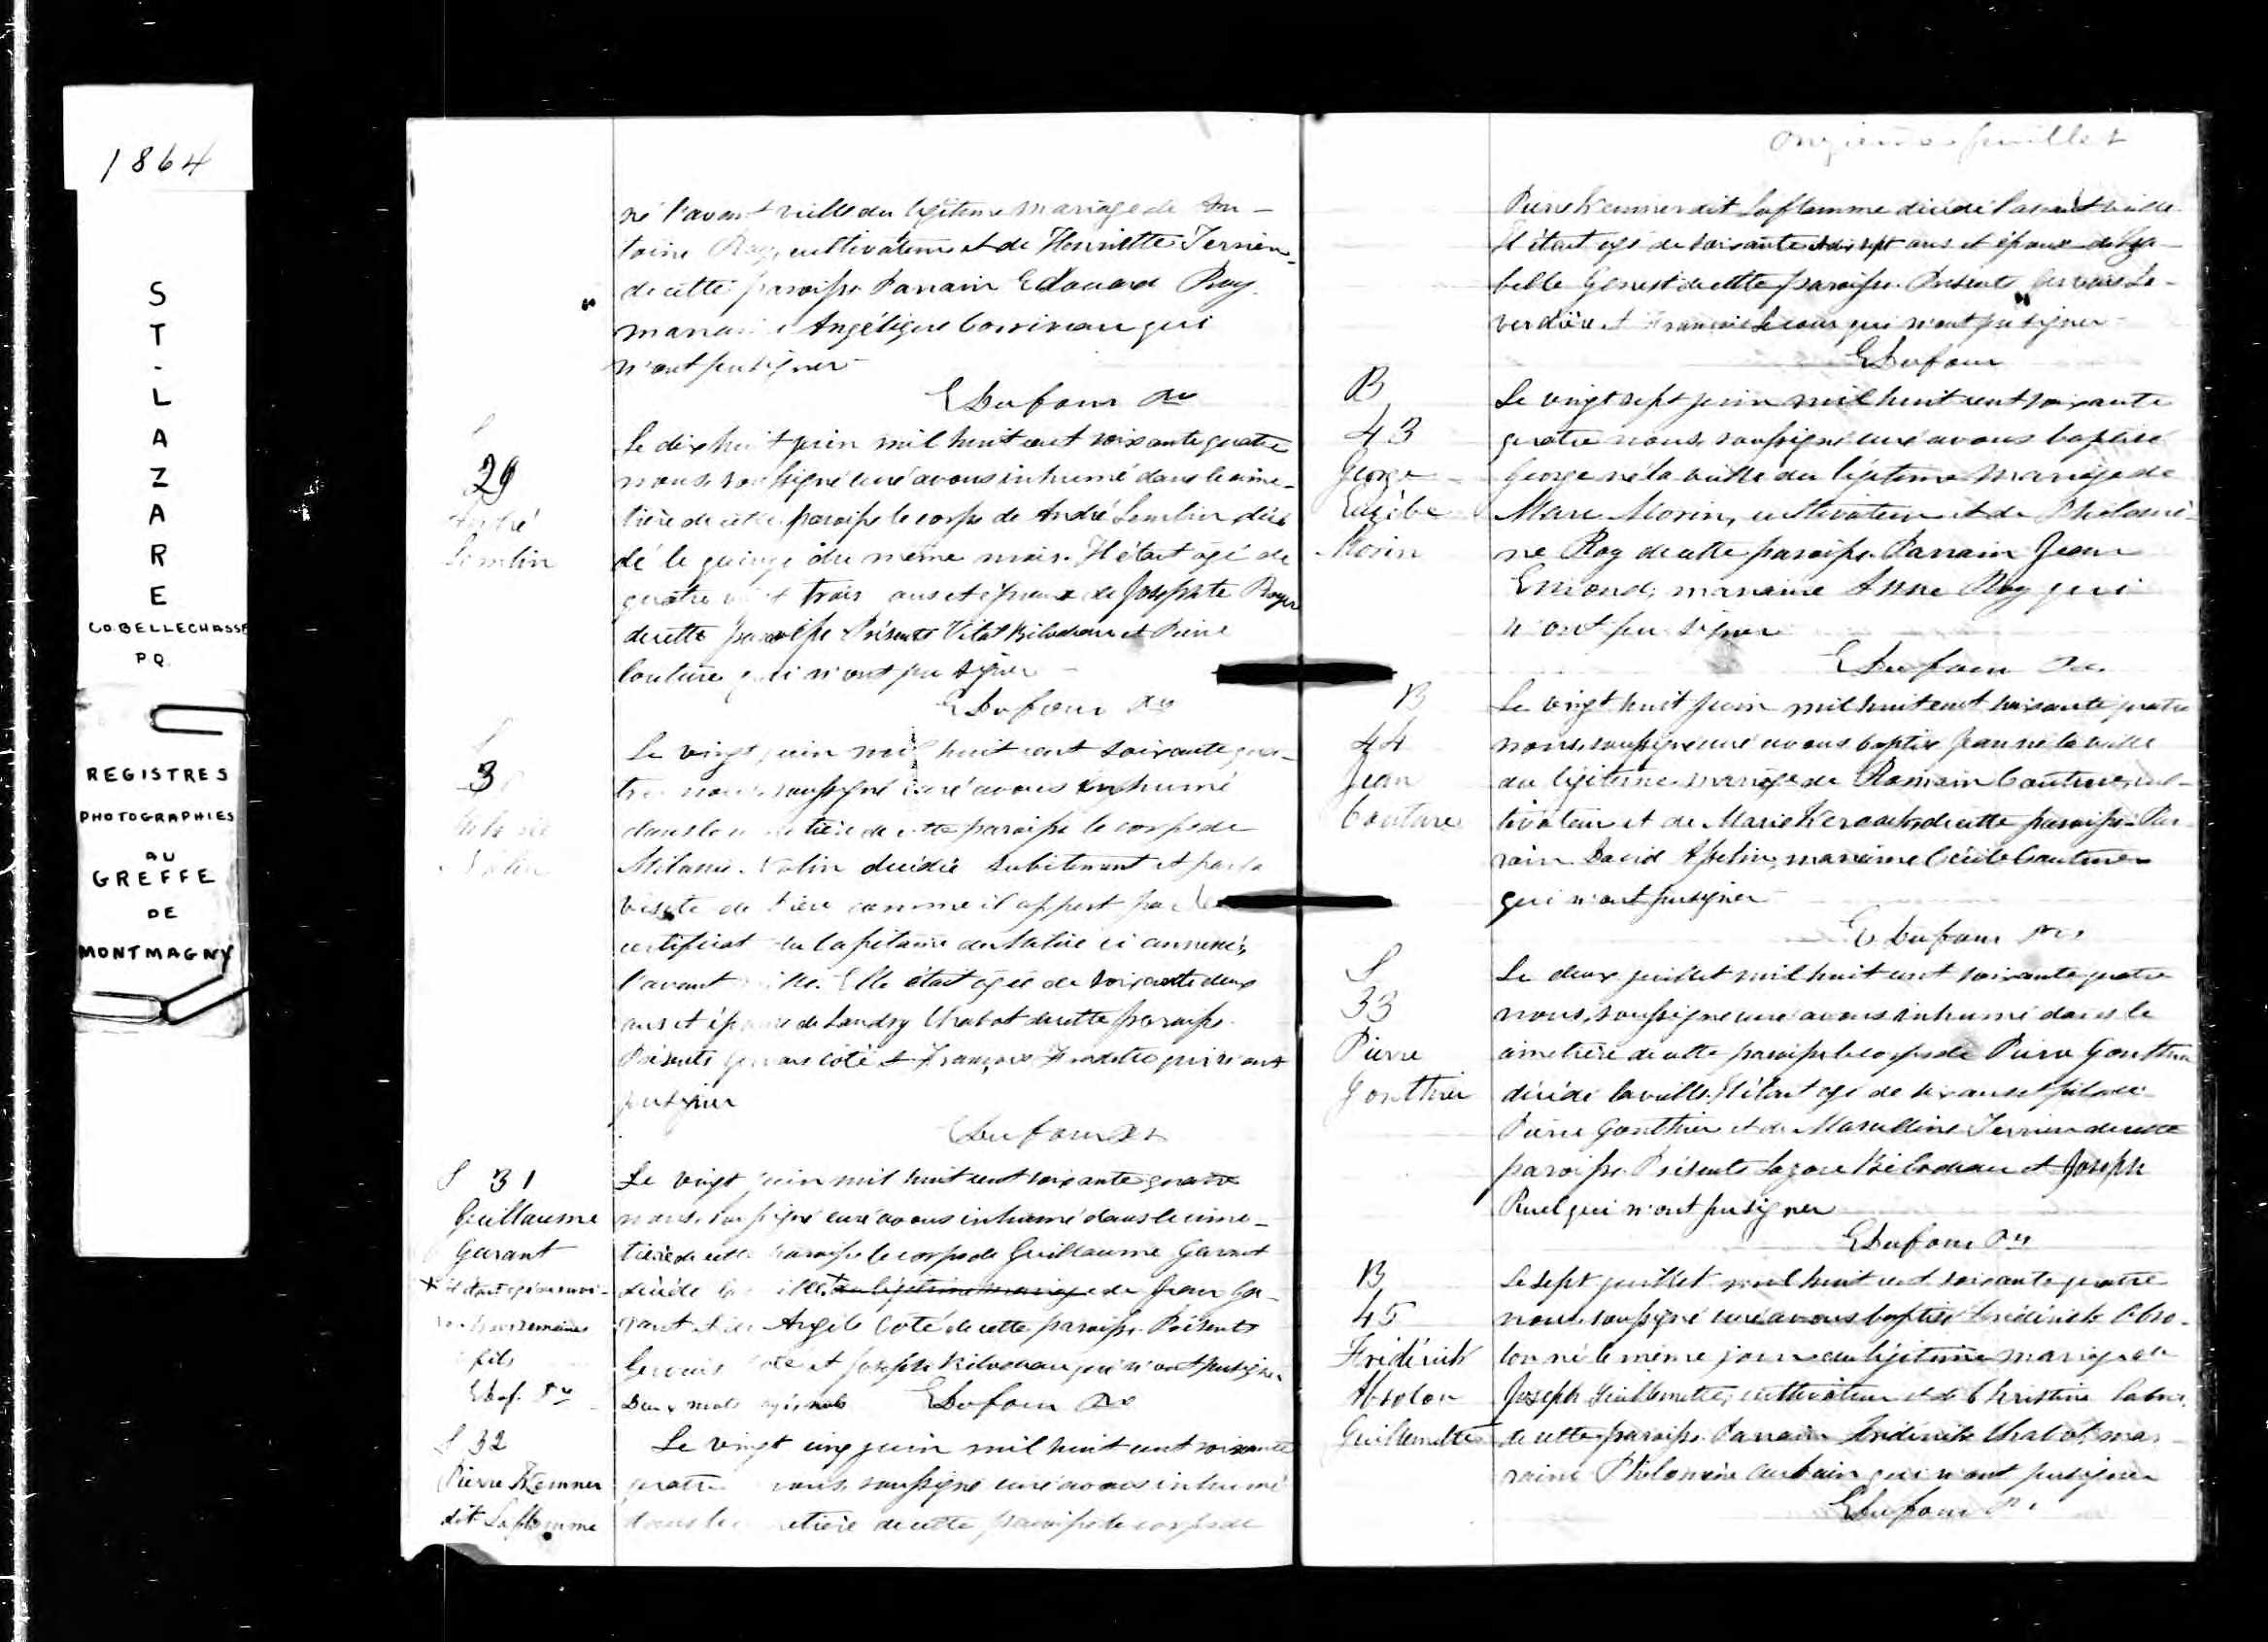 1864
ST-LAZARE
CO. BELLECHASSE
P.Q.
REGISTRES
PHOTOGRAPHIES
AU
GREFFE
DE
MONTMAGNY
né l'avant veille du légitime mariage de An-
toine Roy, cultivateur et de Henriette Terrien
de cette paroisse Parrain Edouard Roy
marraine Angélique Corriveau qui
n'ont pu signer
EDufour Ptr
S
29
André
Lemelin
Le dix huit juin mil huit cent soixante quatre
nous, soussigné curé avons inhumé dans le cime-
tière de cette paroisse le corps de André Lemelin décé
dé le quinze du même mois. Il était âgé de
quatre vingt trois ans et époux de Josephte Royer
de cette paroisse Présents Vital Bilodeau et Pierre
Couture qui n'ont pu signer
EDufour Ptr
S
30
Le vingt juin mil huit cent soixante qua-
tre nous, soussigné curé avons inhumé
dans le cimetière de cette paroisse le corps de
décédée subitement et par la
visite de Dieu comme il appert par le
certificat du Capitaine de Malice ci annexé,
l'avant veille. Elle était âgée de soixante deux
ans et épouse de Landry Chabot de cette paroisse.
Présents Gervais Coté et François qui n'ont
pu signer
EDufour Ptr
S 31
Guillaume
Garant
* Il était âgé de
trois semaines
fils
EDuf. Ptr
Le vingt juin mil huit cent soixante quatre
nous, soussigné curé avons inhumé dans le cime-
tière de cette paroisse le corps de Guillaume Garant
décédé la veille * du légitime mariage de Jean Ga-
rant et de Angèle Coté de cette paroisse. Présents
Gervais Coté et Joseph Bilodeau qui n'ont pu signer
Deux mots rayés nuls EDufour Ptr
S 32
Pierre Kemner
dit Laflamme
Le vingt cinq juin mil huit cent soixante
quatre nous, soussigné curé avons inhumé
dans le cimetière de cette paroisse le corps de
onzième feuillet
Pierre Kemner dit Laflamme décédé l'avant veille.
Il était âgé de soixante dix sept ans et époux de Isa-
belle Genest de cette paroisse. Présents Gervais La-
verdière et François Lecours qui n'ont pu signer
EDufour
B
43
George
Eusèbe
Morin
Le vingt sept juin mil huit cent soixante
quatre nous, soussigné curé avons baptisé
George né la veille du légitime mariage de
Marc Morin, cultivateur et de Philomè-
ne Roy de cette paroisse. Parrain Jean
Emond; marraine Anne Roy qui
n'ont pu signer
EDufour Ptr
B
44
Jean
Couture
Le vingt huit juin mil huit cent soixante quatre
nous, soussigné curé avons baptisé Jean né la veille
du légitime mariage de Romain Couture, cul-
tivateur et de Marie Keroack, de cette paroisse. Par-
rain David Asselin, marraine Cécile Couture
qui n'ont pu signer
EDufour Ptr
S
33
Pierre
Gonthier
Le deux juillet mil huit cent soixante quatre
nous, soussigné curé avons inhumé dans le
cimetière de cette paroisse le corps de Pierre Gonthier
décédé la veille. Il était âgé de six ans et fils de
Pierre Gonthier et de Marcelline Terrien de cette
paroisse. Présents Lazare Bilodeau et Joseph
Ruel qui n'ont pu signer
EDufour Ptr
B
45
Frédérick
Absolon
Guillemette
Le sept juillet mil huit cent soixante quatre
nous, soussigné curé avons baptisé Frédérick Abso-
lon né le même jour du légitime mariage de
Joseph Guillemette, cultivateur et de Christine
de cette paroisse. Parrain Frédérick Chabot, mar-
raine Philomène Aubain qui n'ont pu signer
EDufour Ptr